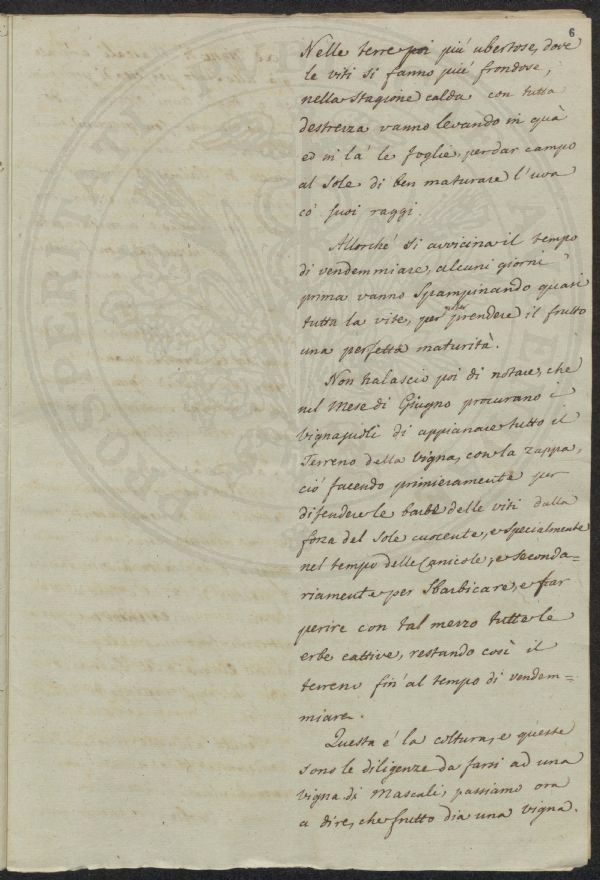 6
Nelle terre poi piu' ubertose, dove
le viti si fanno piu' frondose,
nella Stagione calda con tutta
destrezza vanno levando in quà
ed in là le foglie, per dar campo
al Sole di ben maturare l'uva
co' suoi raggi.
Allorche' si avvicina il tempo
di vendemmiare, alcuni giorni
prima vanno Spampinando quasi
tutta la vite, per prendere il frutto
una perfetta maturità.
Non tralascio poi di notare, che
nel Mese di Giugno procurano i
Vignajuoli di appianare tutto il
Terreno della Vigna, con la zappa,
ciò facendo primieramente per
difendere le barbe delle viti dalla
forza del Sole cuocente, e specialmente
nel tempo delle Canicole, e seconda=
riamente per Sbarbicare, e far
perire con tal mezzo tutte le
erbe cattive, restando così il
terreno fin' al tempo di vendem=
miare.
Questa e' la coltura, e queste
sono le diligenze da farsi ad una
Vigna di Mascali; passiamo ora
a dire, che frutto dia una vigna.
PROSPERITATI